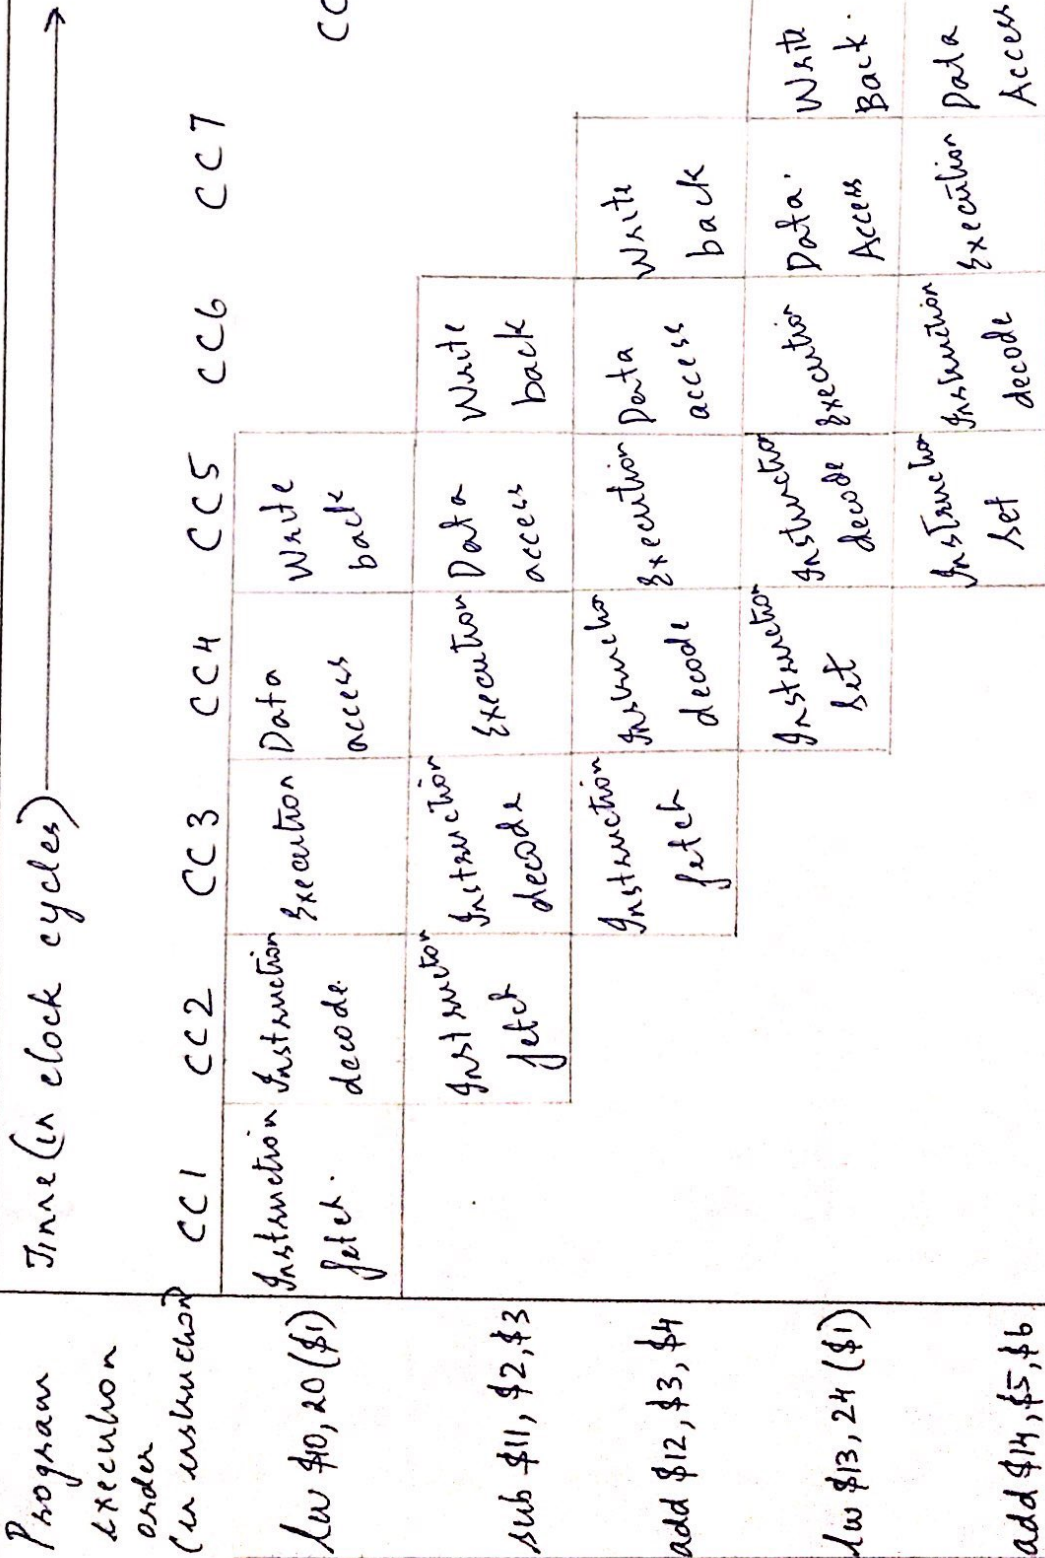 Time (in clock cycles)
Program
execution
order
(in instruction)
CC1 CC2 CC3 CC4 CC5 CC6 CC7 CC
lw $10, 20 ($1)
Instruction
fetch.
Instruction
decode.
Execution
Data
access
Write
back
sub $11, $2, $3
Instruction
fetch
Instruction
decode
Execution
Data
access
Write
back
add $12, $3, $4
Instruction
fetch
Instruction
decode
Execution
Data
access
Write
back
lw $13, 24 ($1)
Instruction
set
Instructio
decode
Execution
Data
Access
Write
Back.
add $14, $5, $6
Instructio
set
Instruction
decode
Execution
Data
Access